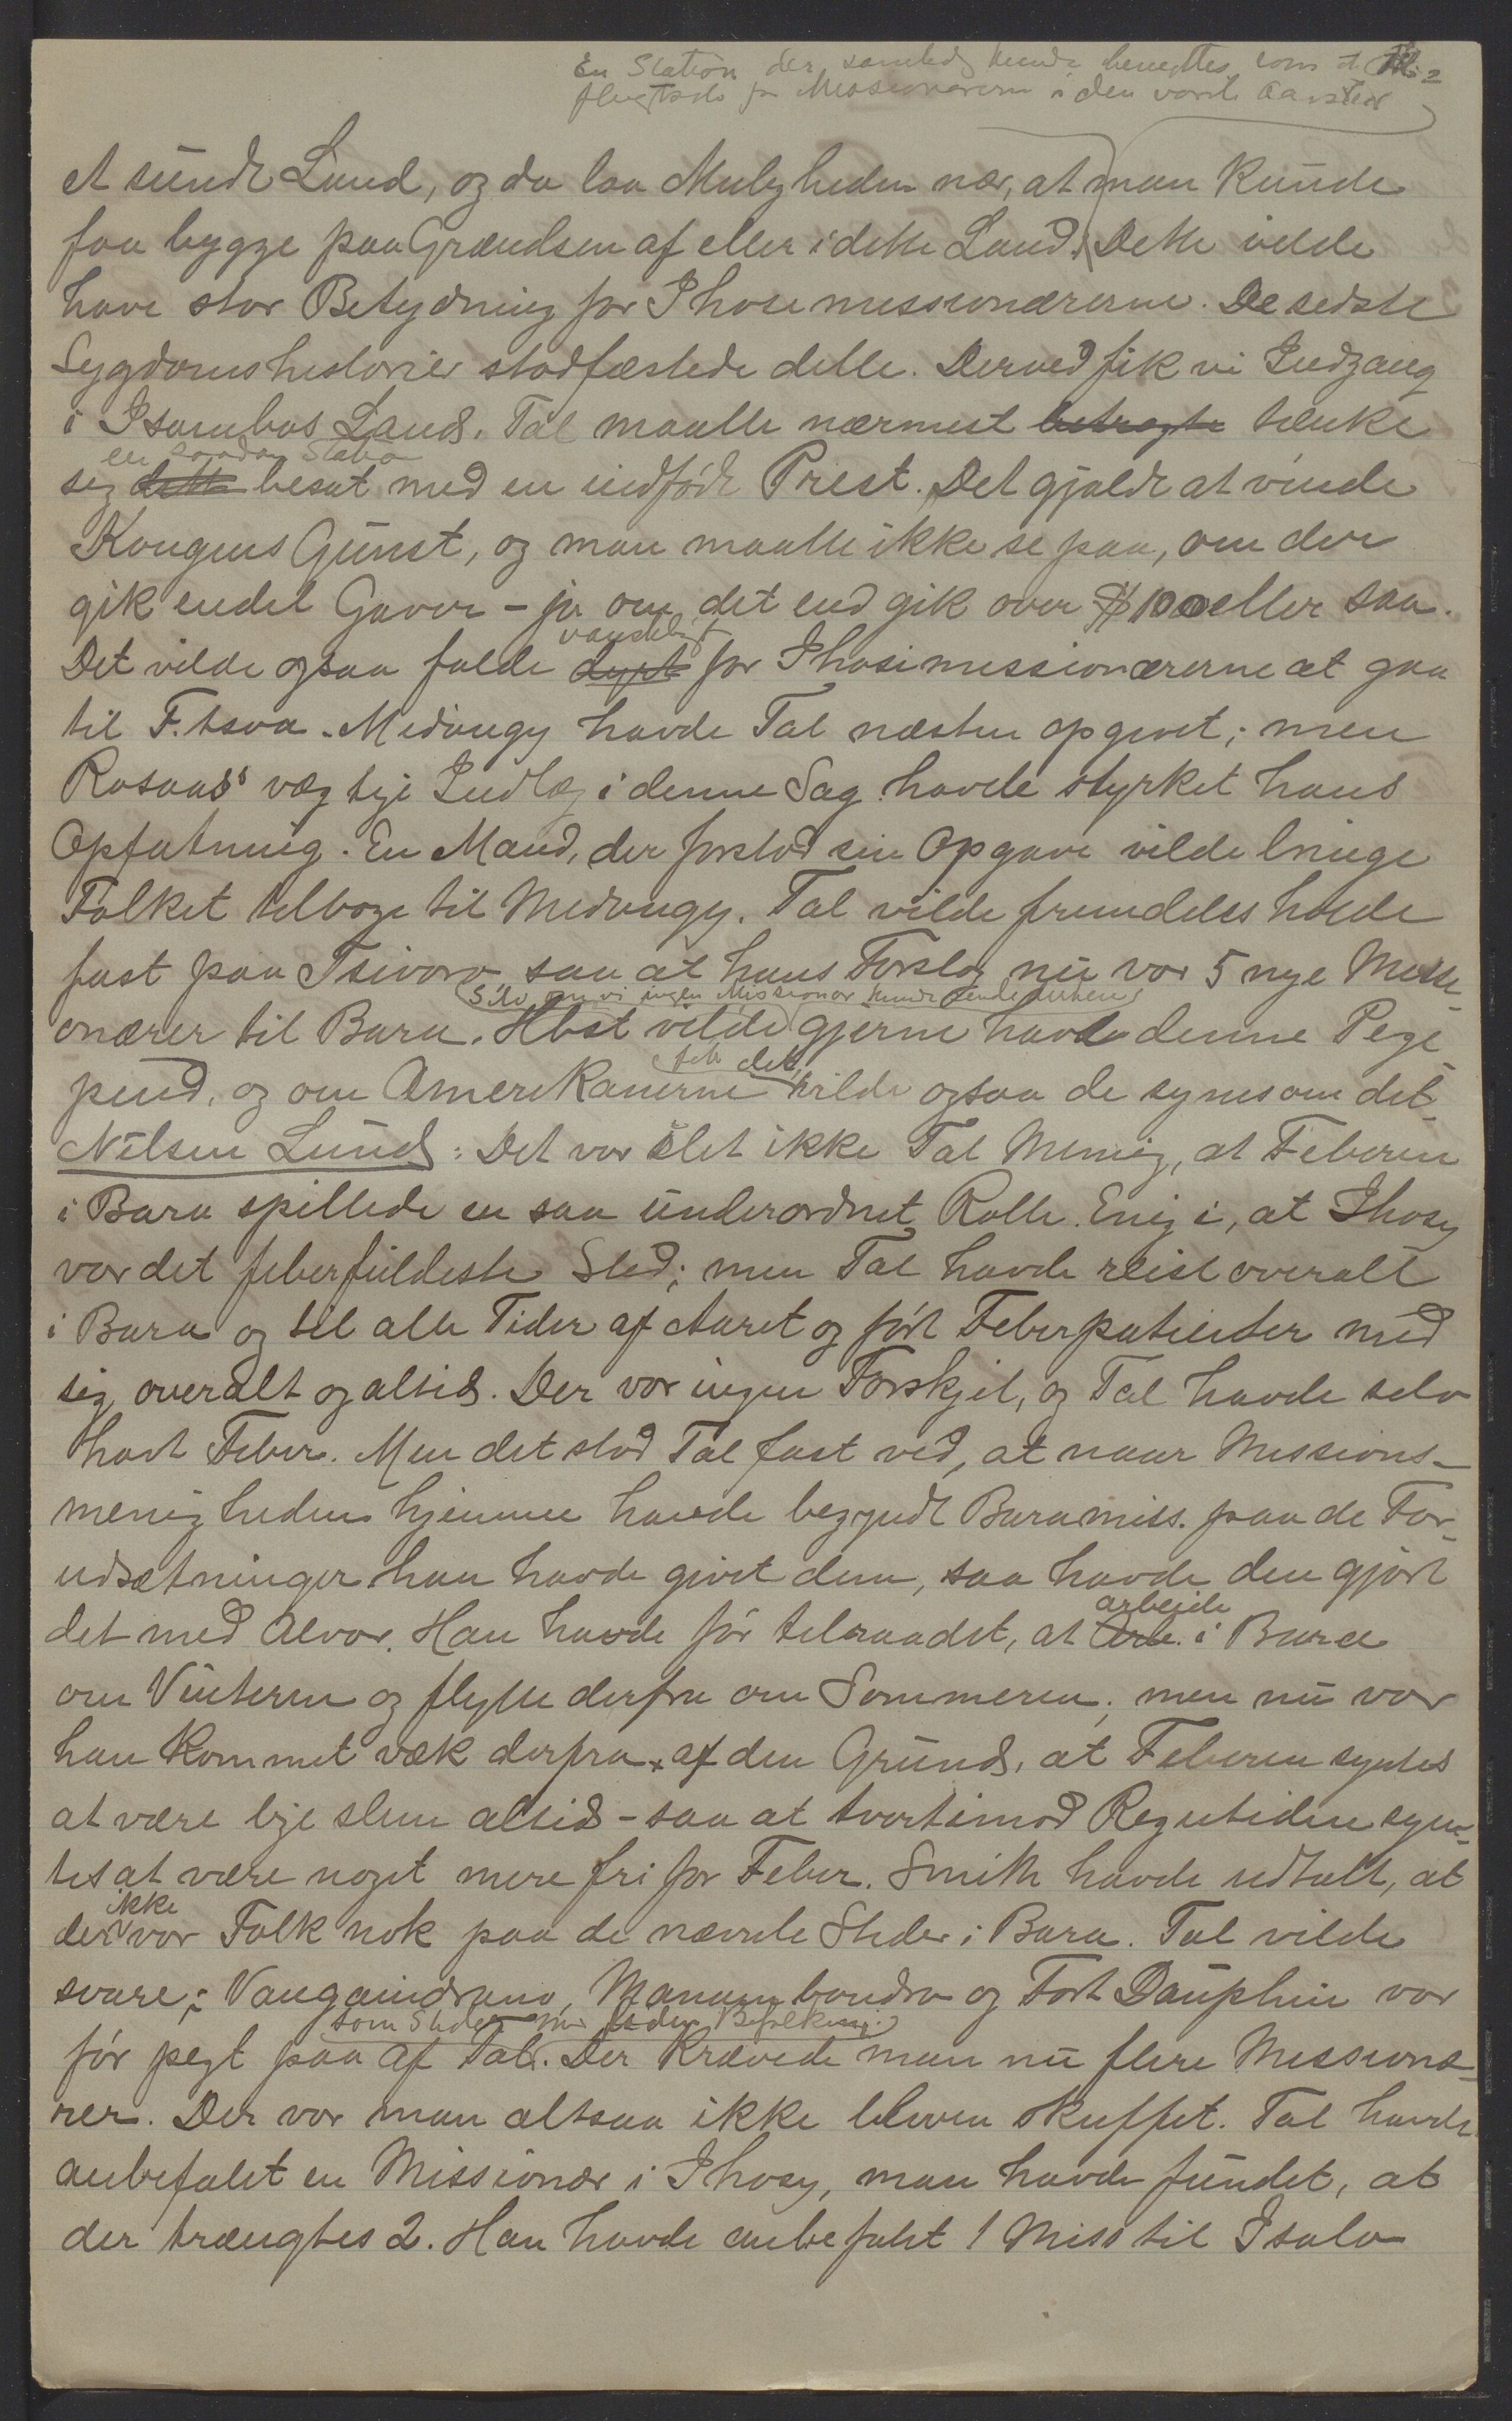 En Station der samtidig kunde benyttes som et Til-
flugtssted for Missionærerne i den varste Aarstid
et sundt Land, og da laa Muligheden nær, at man kunde
faa bygge paa Grændsen af eller i dette Land. Dette vilde
have stor Betydning for Ihosimissionærerne. De sidste
Sygdomshistorier stadfæstede dette. Derved fik vi Indgang
i Isambos Land. Tal maatte nærmest betragte tænke
en saadan Station
sig dette besat med en indfødt Prest. Det gjaldt at vinde
Kongens Gunst, og man maatte ikke se paa, om der
gik endel Gaver - ja om det end gik over $ 100 eller saa.
vanskeligt
Det vilde ogsaa falde dyrt for Ihosimissionærerne at gaa
til F. tsoa. Midongy havde Tal næsten opgivet; men
Rosaas's vægtige Indlæg i denne Sag havde styrket hans
Opfatning. En Mand, der forstod sin Opgave vilde bringe
Folket tilbage til Midongy. Tal vilde fremdeles holde
fast paa Tsivory saa at hans Forslag nu var 5 nye Missi-
Selv om vi ingen Missionær kunde sende derhen
onærer til Bara. Hbst vilde gjerne havde denne Pege-
fik det,
pind, og om Amerikanerne vilde ogsaa de synes om det.
Nilsen Lund: Det var slet ikke Tal Mening, at Feberen
i Bara spillede en saa underordnet Rolle. Enig i, at Ihosy
var det feberfuldeste Sted; men Tal havde reist overalt
i Bara og til alle Tider af Aaret og ført Feberpatienter med
sig overalt og altid. Der var ingen Forskjel, og Tal havde selv
havt Feber. Men det stod Tal fast ved, at naar Missions-
menigheden hjemme havde begyndt Baramiss. paa de For-
udsætninger han havde givet dem, saa havde den gjort
det med Alvor. Han havde før tilraadet, at
arbeide
Arb. i Bara
om Vinteren og flytte derfra om Sommeren; men nu var
han kommet væk derfra af den Grund, at Feberen syntes
at være lige slem altid - saa at tvertimod Regntiden syn-
tes at være noget mere fri for Feber. Smith havde udtalt, at
ikke
der var Folk nok paa de nævnte Steder i Bara. Tal vilde
svare: Vangaindrano, Manambondro og Fort Dauphin var
som Steder med Befolkning
før pegt paa af Tal. Der krævede man nu flere Missionæ-
rer. Der var man altsaa ikke bleven skuffet. Tal havde
anbefalet en Missionær i Ihosy, man havde fundet, at
der trængtes 2. Han havde anbefalet 1 Miss til Isalo